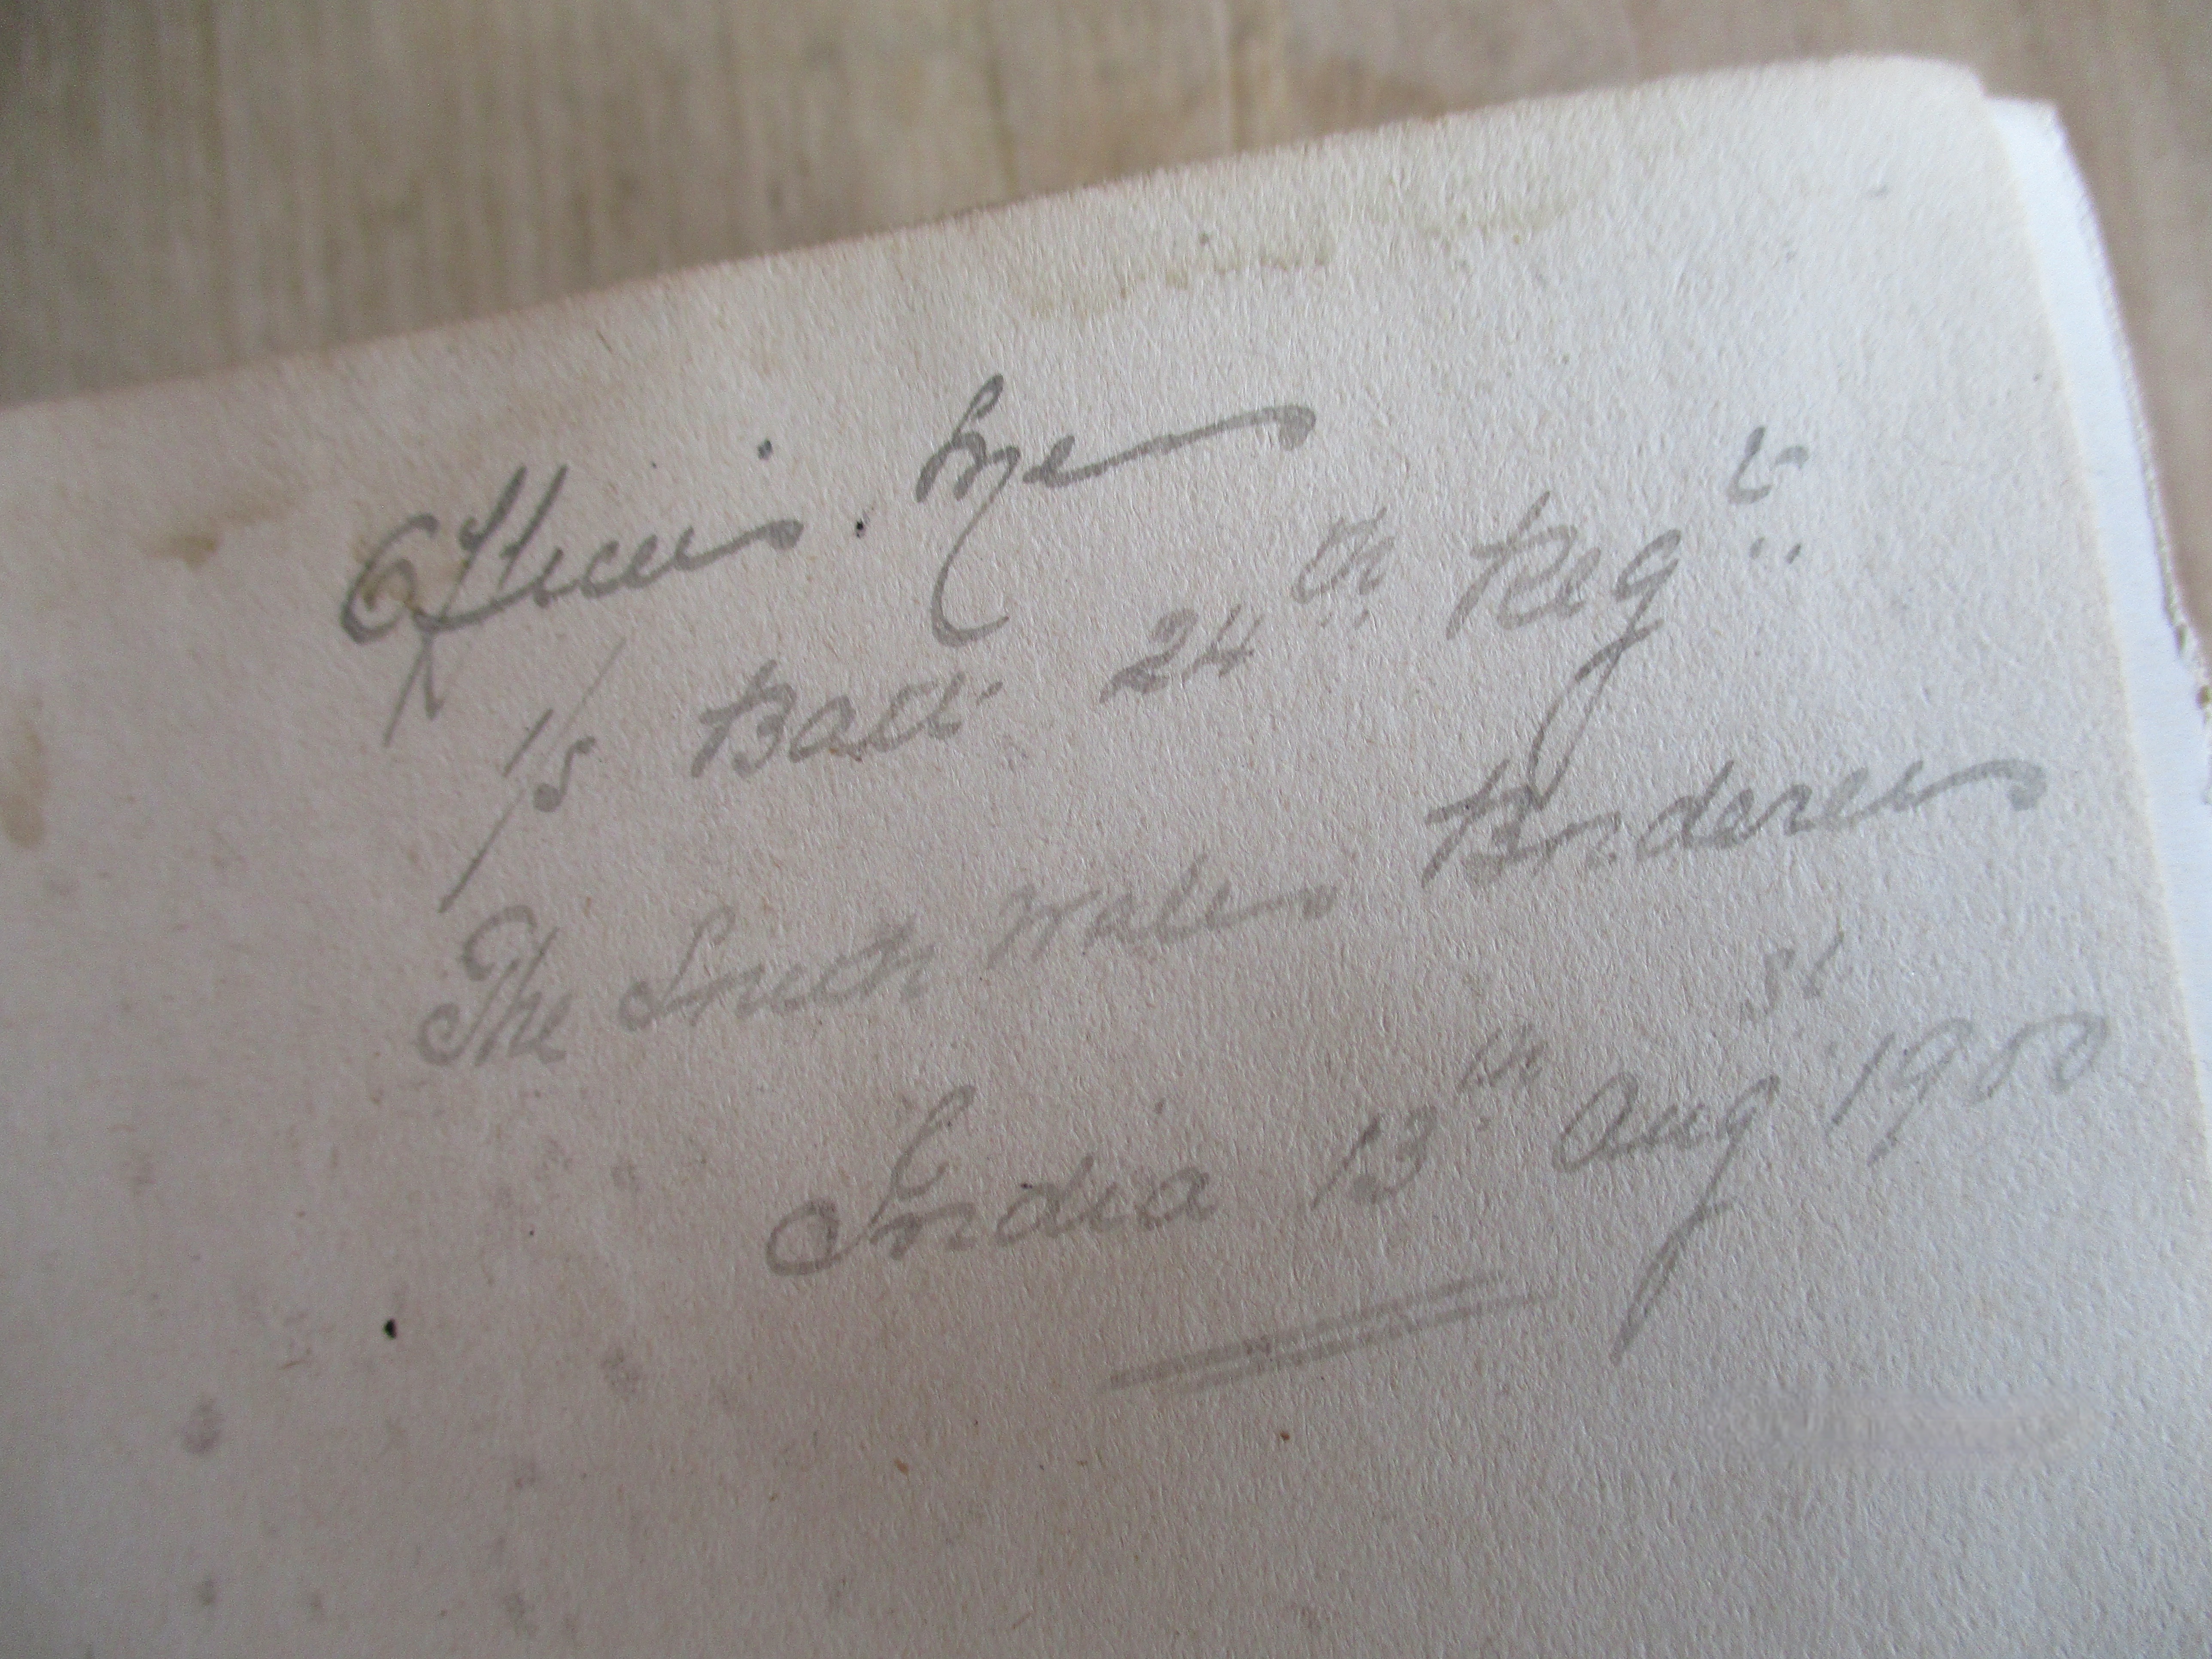 Officers. Mge
1/s Batt 24th Regt
The South Wales Borderers
India 13th Aug st 1900